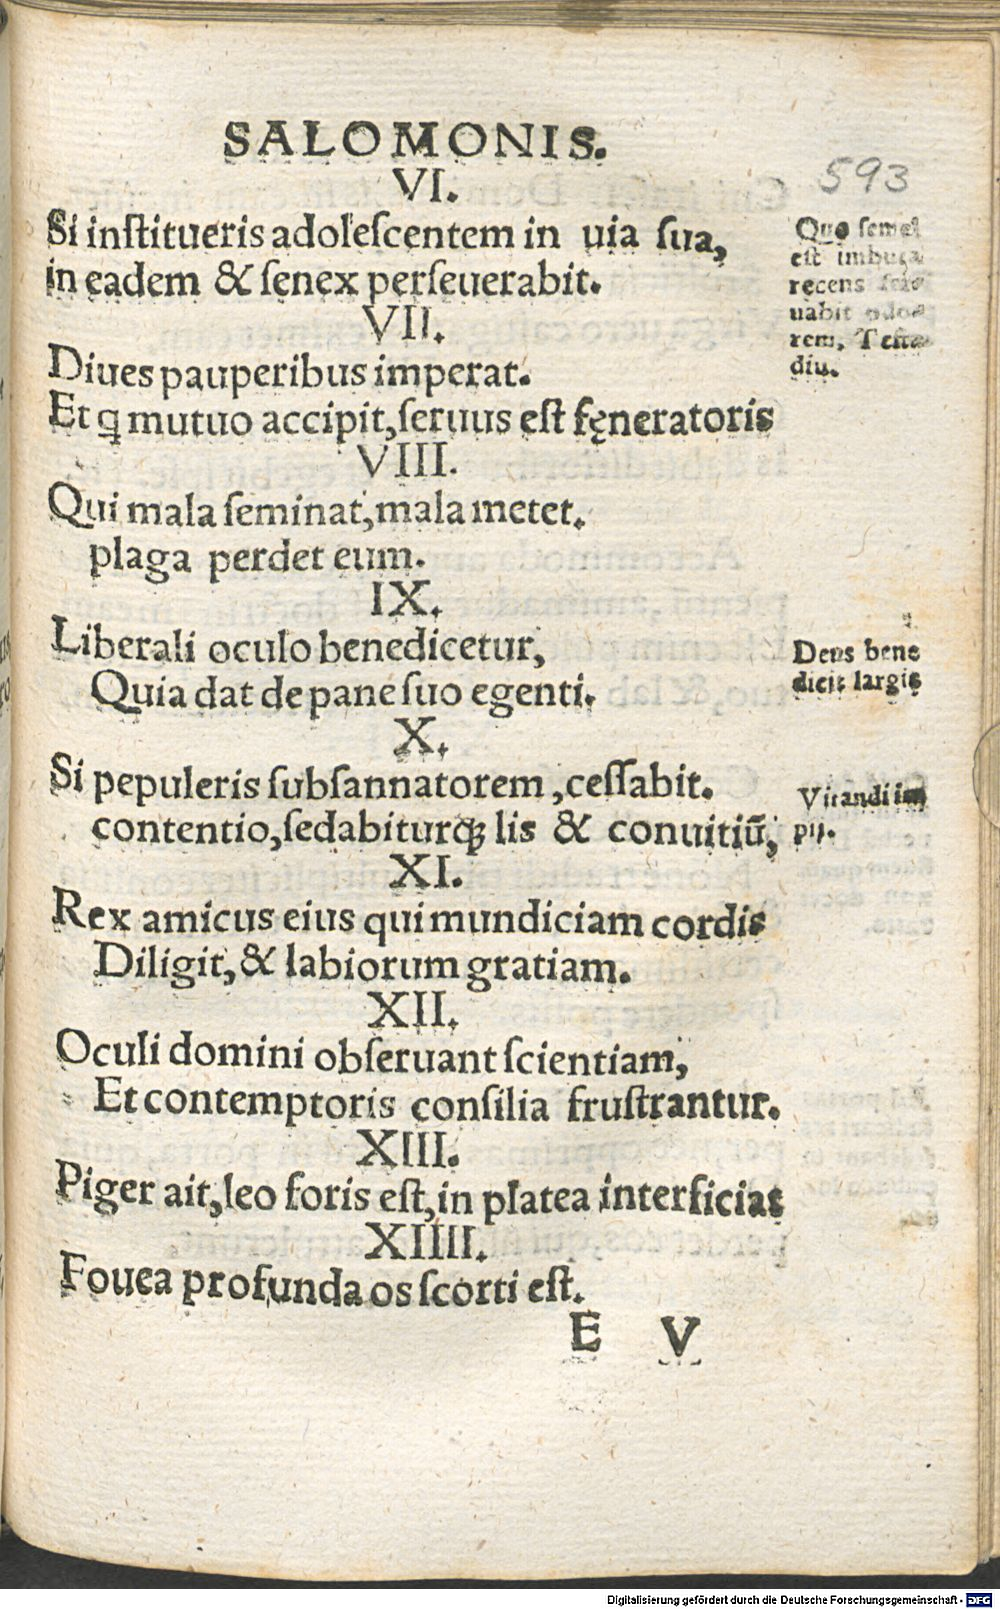 SALOMONIS.
593
VI.
Si inſtitueris adoleſcentem in uia ſua,
in eadem & ſenex perſeuerabit.
Quo ſemel
eſt imbuta
recens ſer⸗
uabit odo⸗
rem, Teſta
diu.
VII.
Diues pauperibus imperat.
Et ꝗ mutuo accipit, ſeruus eſt fęneratoris
VIII.
Qui mala ſeminat, mala metet.
plaga perdet eum.
IX.
Liberali oculo benedicetur,
Quia dat de pane ſuo egenti.
Deus bene
dicit largis
X.
Si pepuleris ſubſannatorem, ceſſabit.
contentio, ſedabiturq́ꝫ lis & conuitiū,
Vitandi im
pij.
XI.
Rex amicus eius qui mundiciam cordis
Diligit, & labiorum gratiam.
XII.
Oculi domini obſeruant ſcientiam,
Et contemptoris conſilia fruſtrantur.
XIII.
Piger ait, leo foris eſt, in platea interficias
XIIII.
Fouea profunda os ſcorti eſt.
E V
Digitalisierung gefördert durch die Deutsche Forschungsgemeinschaft - DFG